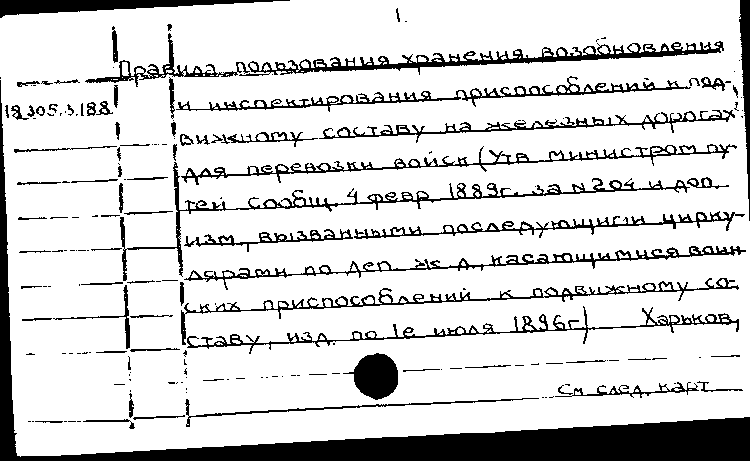 1.
Правила пользования, хранения, возобновления
18.305.3.188 и инспектирования приспособлений к под-
вижному составу на железных дорогах
для перевозки войск (Утв министром пу-
тей сообщ. 4 февр. 1889г. за N 204 и доп.
изм., вызванными последующими цирку-
лярами по деп. ж д., касающимися воин
ских приспособлений к подвижному со-
ставу, изд. по 1е июля 1896г) Харьков,
См след. карт